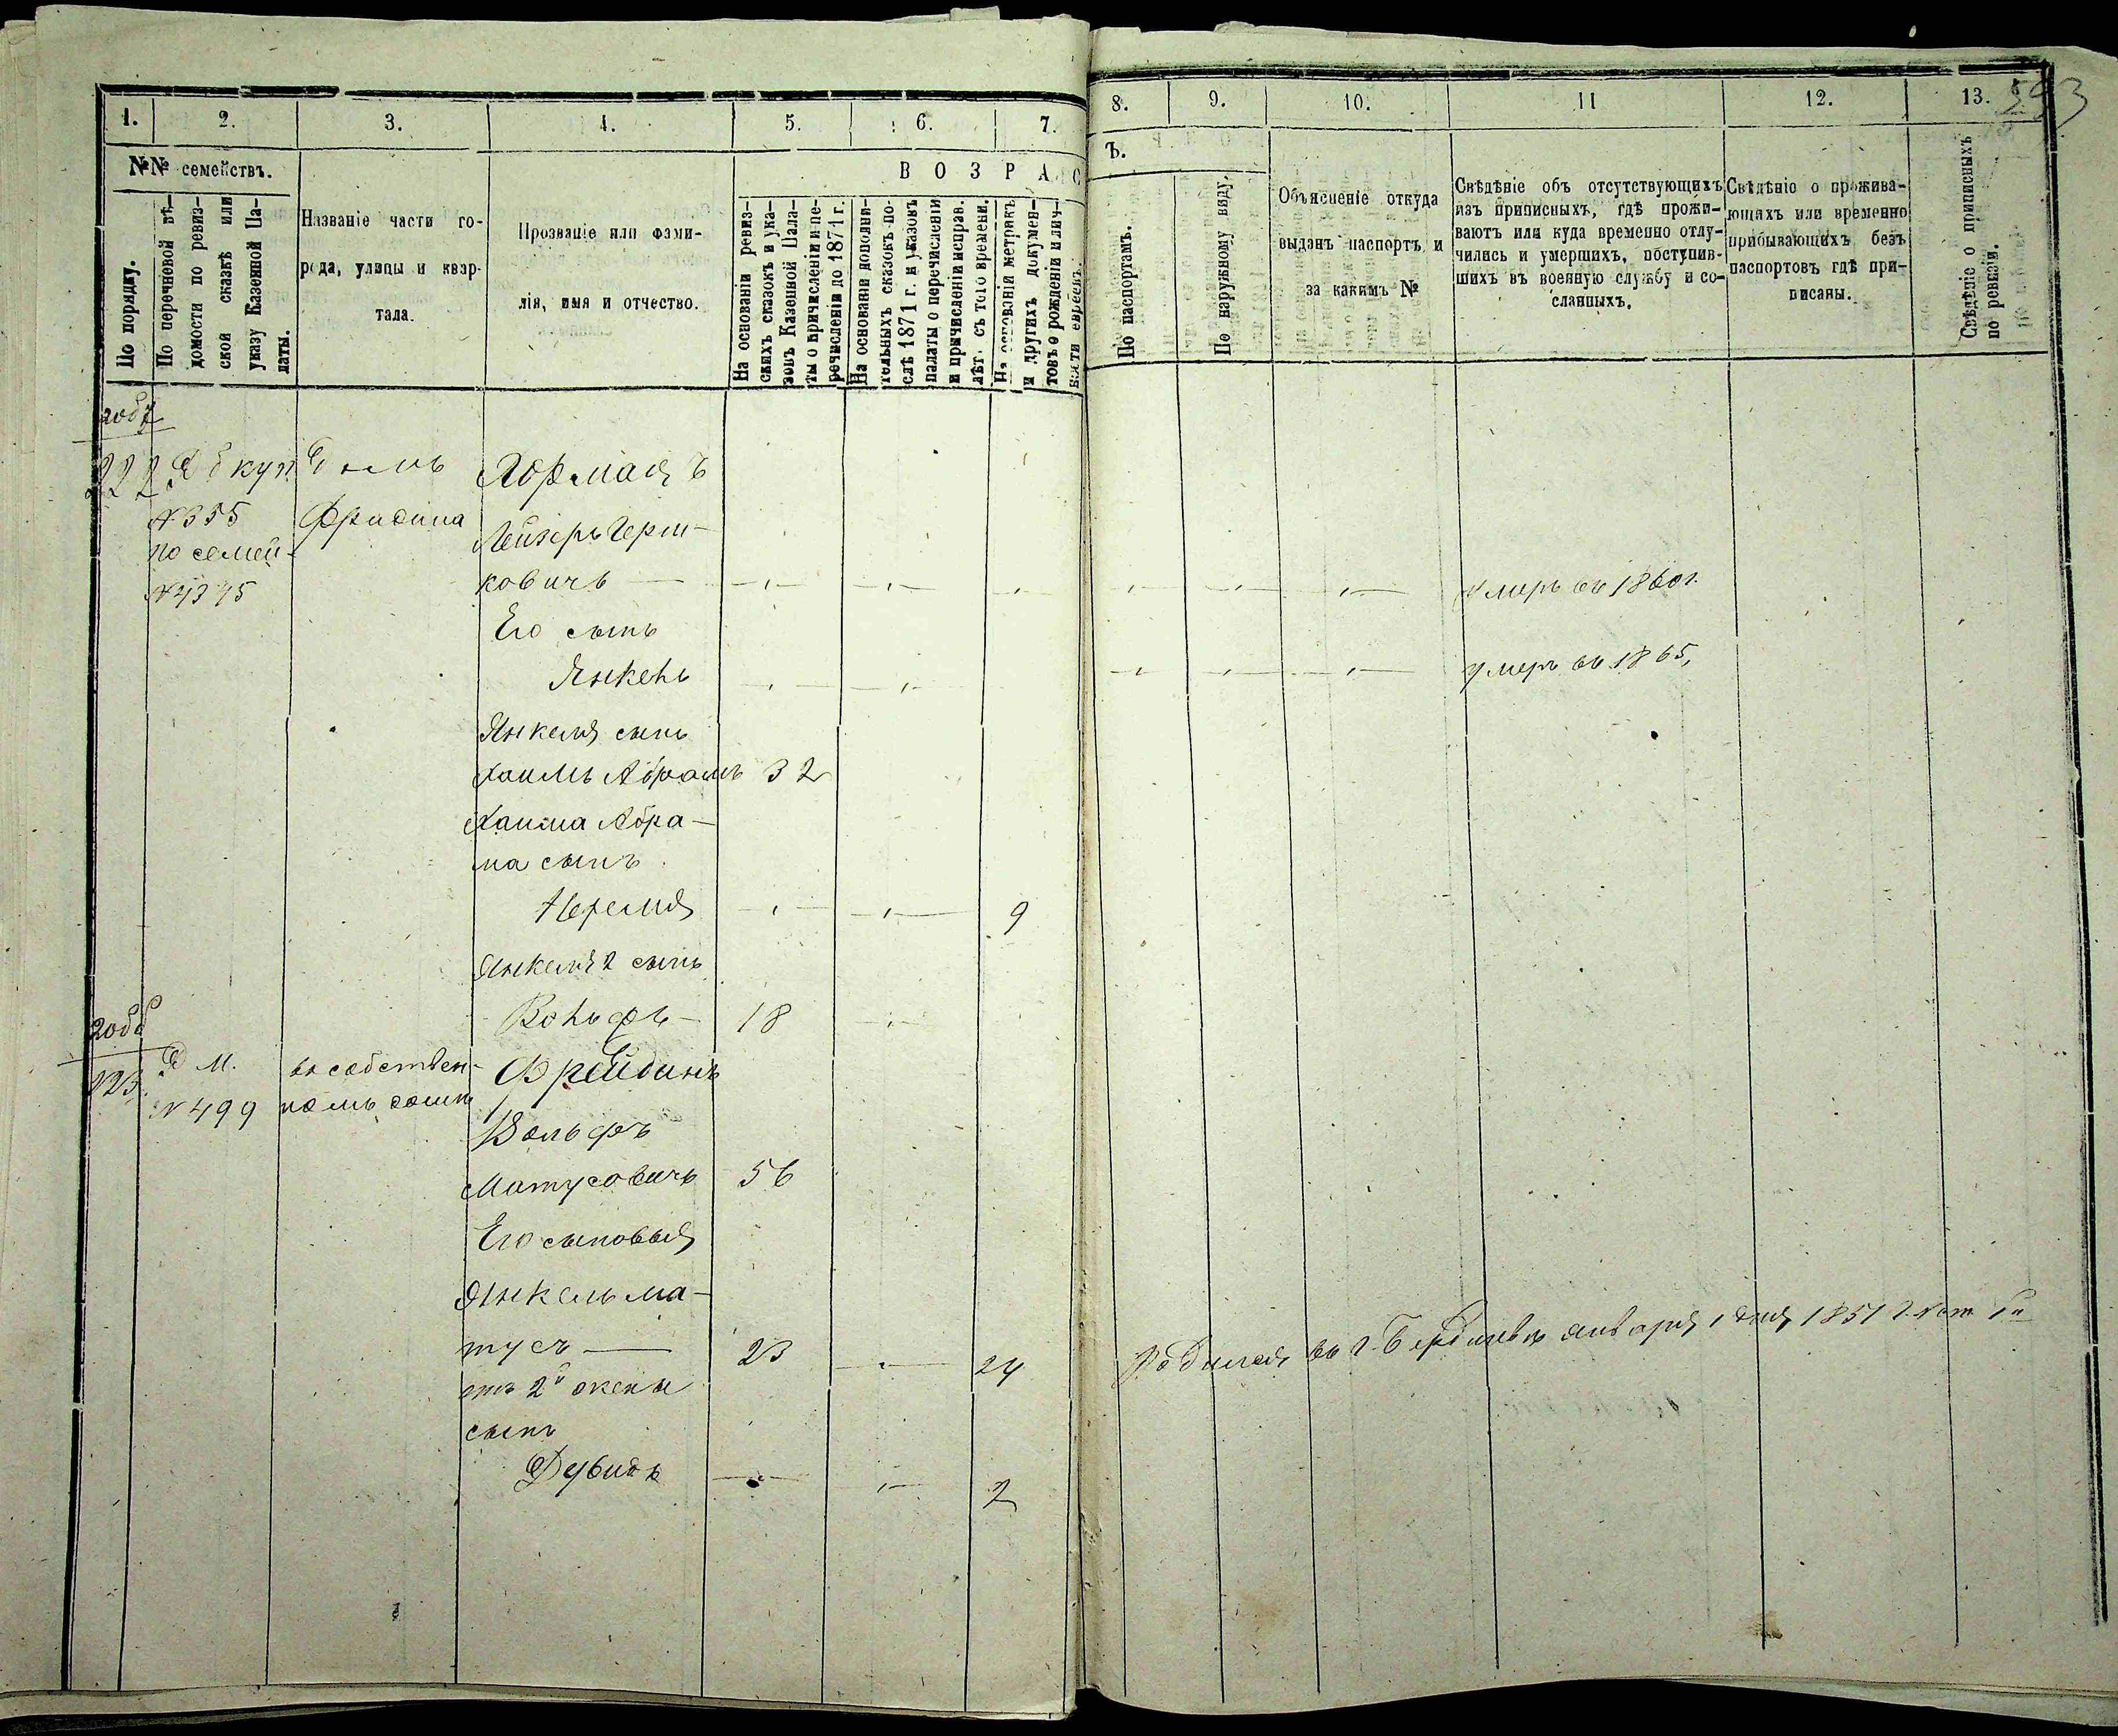 593
1.
2.
3.
4.
5.
6.
7.
8.
9.
10.
11
12.
13.
№№ семействъ.
В О З Р А С
Ъ.
По порядку.
По перечневой вѣ-
домости по ревиз-
ской сказкѣ или
указу Казенной Па-
латы.
Названіе части го-
рода, улицы и квар-
тала.
Прозваніе или фами-
лія, имя и отчество.
На основаніи ревиз-
скихъ сказокъ и ука-
зовъ Казенной Пала-
ты о причисленіи и пе-
речисленіи до 1871 г.
На основаніи дополни-
тельныхъ сказокъ по-
слѣ 1871 г. и указовъ
палаты о перечисленіи
и причисленіи исправ.
лѣт. съ того времени.
На основаніи метрикъ
и другихъ докумен-
товъ о рожденіи и лич-
ности евреевъ.
По паспортамъ.
По наружному виду.
Объясненіе откуда
выданъ паспортъ и
за какимъ №
Свѣдѣніе объ отсутствующихъ
изъ приписныхъ, гдѣ прожи-
ваютъ или куда временно отлу-
чились и умершихъ, поступив-
шихъ въ военную службу и со-
сланныхъ.
Свѣдѣніе о прожива-
ющихъ или временно
прибывающихъ безъ
паспортовъ гдѣ при-
писаны.
Свѣдѣніе о приписныхъ
по ревизіи.
222
куп.
Фридина
№ 355
Лейзеръ Герш-
по семей-
ковичъ умеръ въ 1860 г.
№ 4375
Его сынъ
Янкель умеръ въ 1865,
Янкеля сынъ
Хаимъ Абрамъ 32
Хаима Абра-
ма сынъ
9
Янкеля 2 сынъ
Вольфъ 18
М. въ собствен- Фрейдинъ
№ 499 номъ домѣ
Вольфъ
Матусовичъ 56
Его сыновья
Янкель Ма-
тусъ 23 24 Родился въ г. Бердичевѣ января 1 дня 1851 г.
отъ 2й жены
сынъ
Дувидъ 2